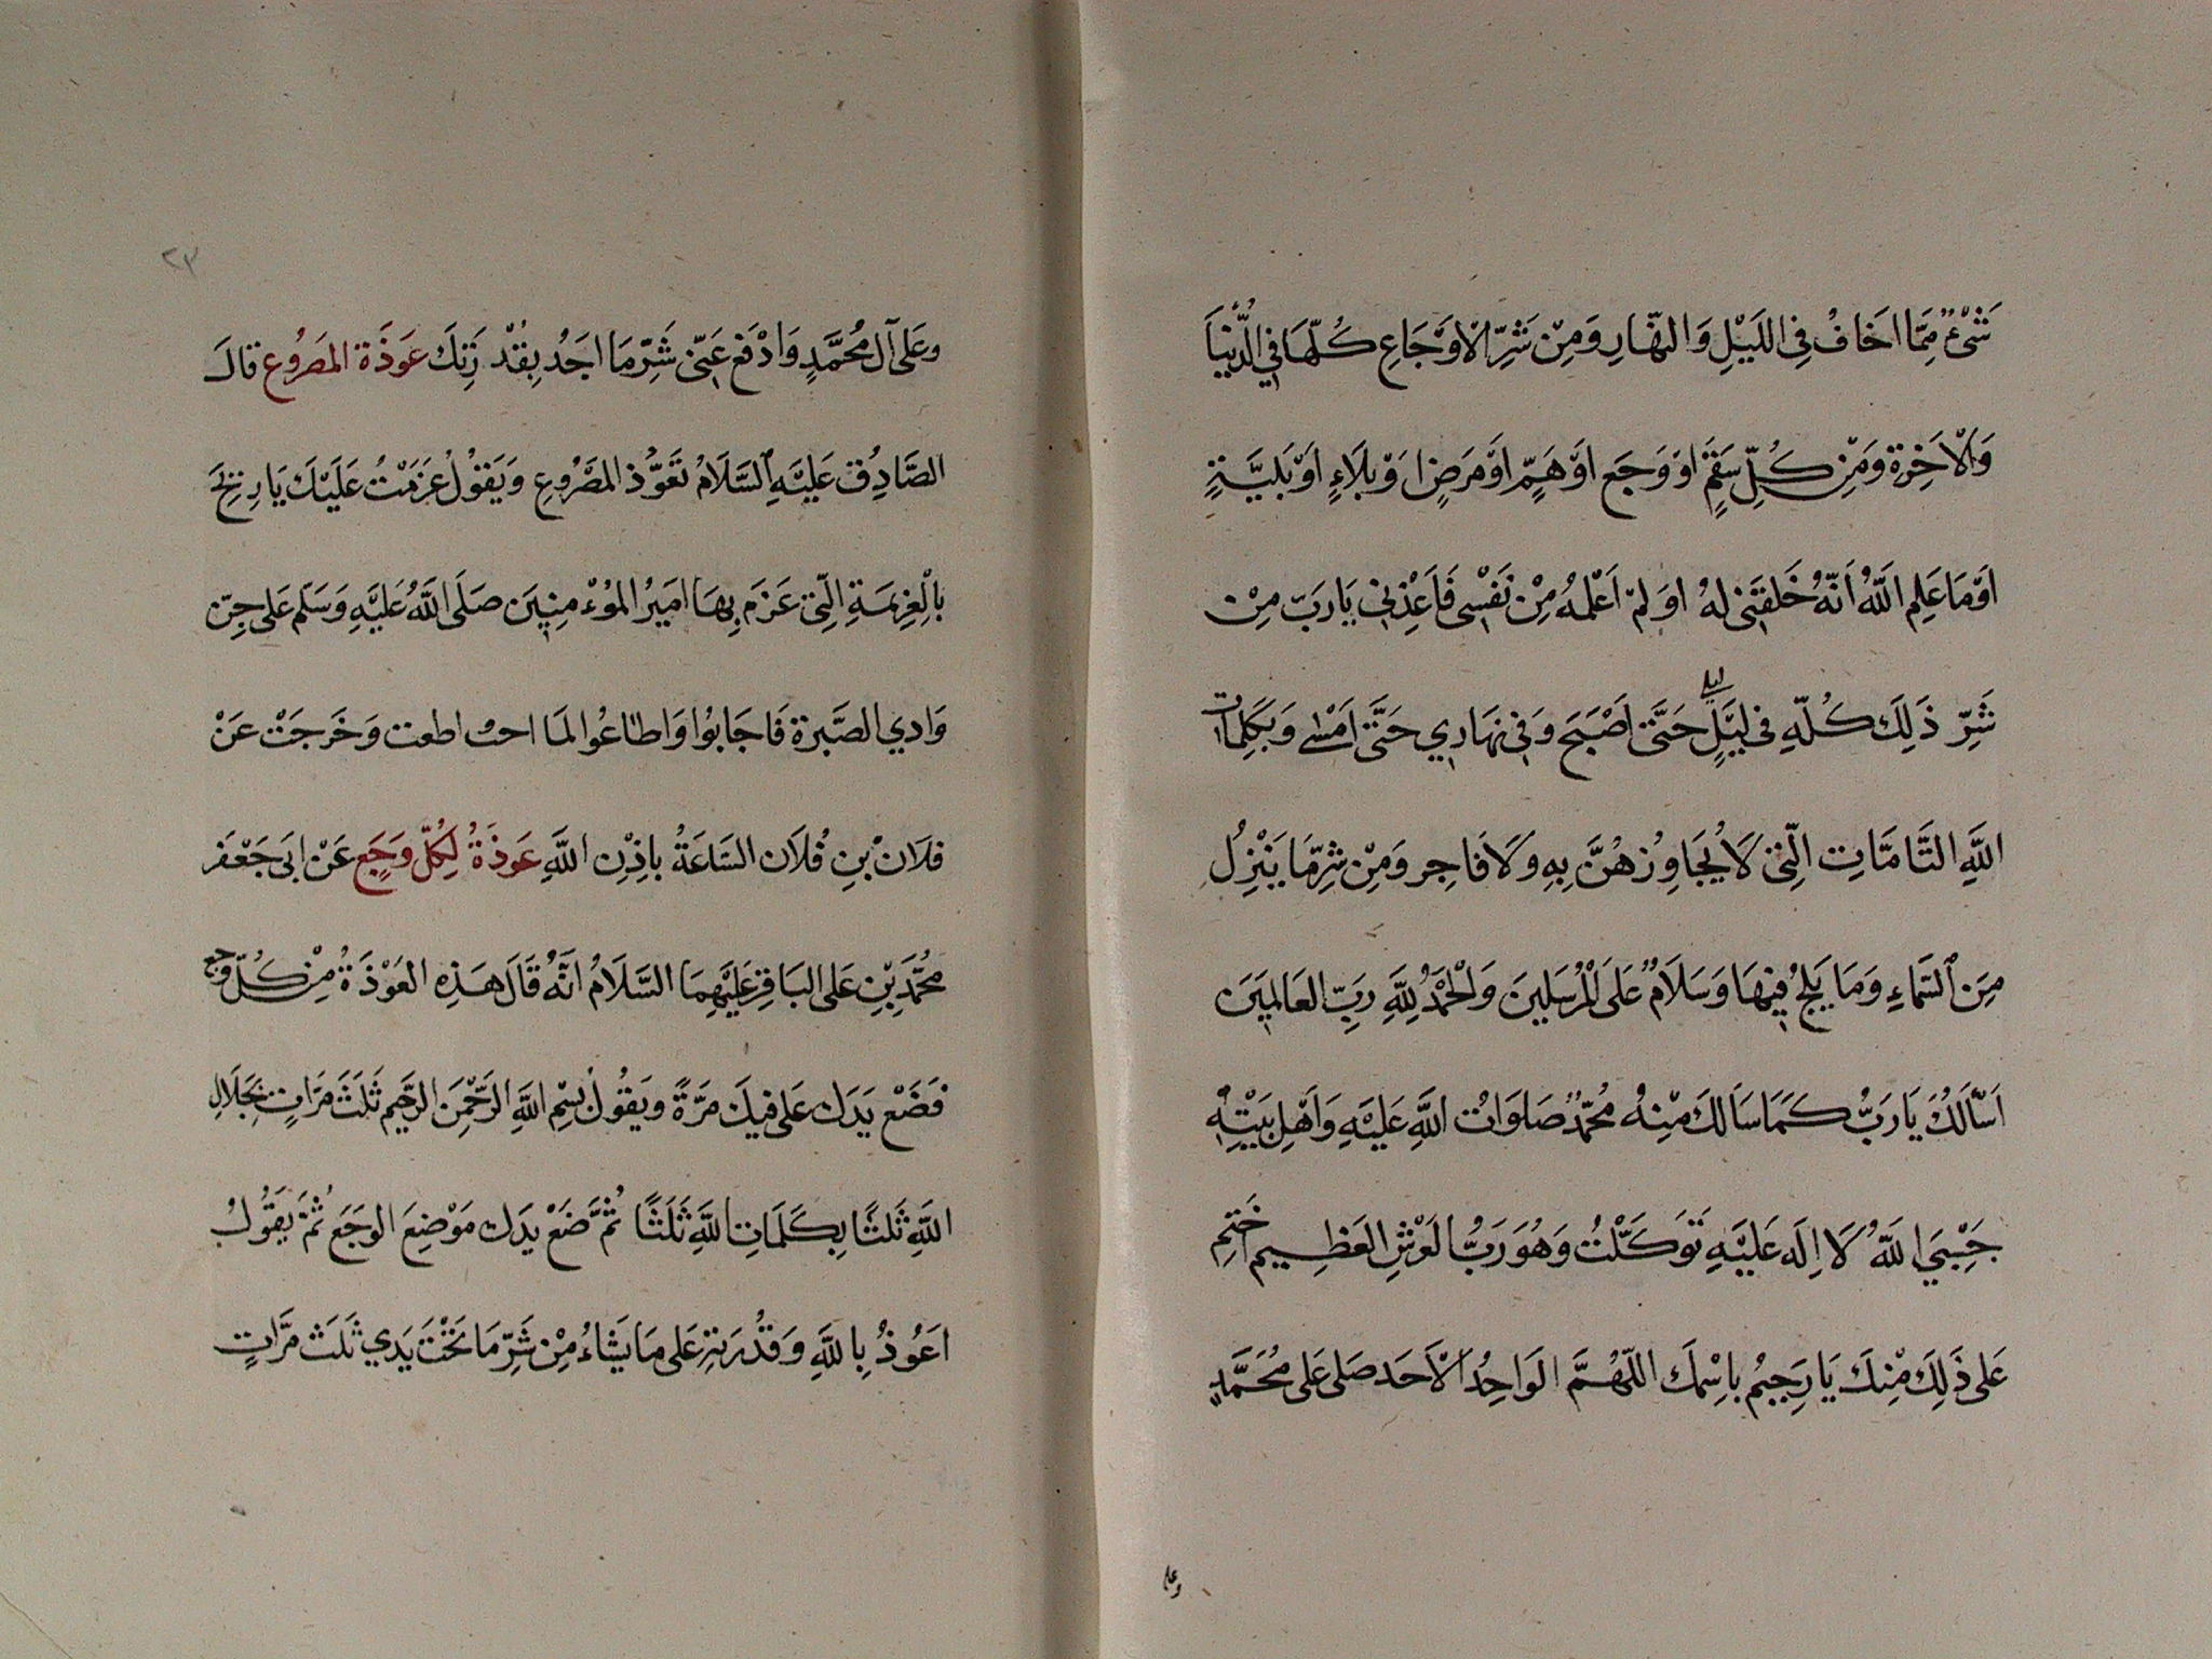 شَىْءٌ مِمَّا اخَافُ فِى اللَيْلِ وَالنَّهَارِ وَمِنْ شَرِّ الْاَوْجَاعِ كُلِّهَا فِي الدُّنْيَا
وَالْاَخِرَةِ وَمِنْ كُلِّ سَقَمٍ اوْ وَجَعٍ اوْ هَمٍّ اوْ مَرَضٍ اوْ بَلَاءٍ اوْ بَلِيَّةٍ
اوْ مَا عَلِمَ اللَّهُ اَنَّهُ خَلَقَنِى لَهُ اوْ لَمْ اَعْلَمْهُ مِنْ نَفْسِى فَاَعِذْنِى يَارَبِّ مِنْ
شَرِّ ذَلِكَ كُلِّهِ فى لَيْلٍ حَتَّى اصْبَحَ وَفِى نَهَارِي حَتَّى اَمْسٰى وَبِكَلِمَاتِ
اللَّهِ التَّامَّاتِ الَّتِى لَا يُجَاوِزُهُنَّ بِهِ وَلَا فَاجِر وَمِنْ شَرِّ مَا يَنْزِلُ
مِنَ السَّمَاءِ وَمَا يَلِجُ فِيْهَا وَسَلَامٌ عَلَى الْمُرْسَلِينَ وَالْحَمْدُ لِلَّهِ رَبِّ العَالَمِيَنَ
اَسْاَلُكَ يَارَبُّ كَمَا سَاَلَكَ مِنْهُ مُحَمَّدٌ صَلَوَاتُ اللَّهِ عَلَيْهِ وَاَهْلِ بَيْتِهِ
حَسْبِيَ اللَّهُ لَا اِلَه عَلَيْهِ تَوَكَّلْتُ وَهُوَ رَبُّ العَرْشِ العَظِيم اَخْتِم
عَلى ذَلِكَ مِنْكَ يَارَحِيمُ بِاسْمِكَ اللّهُمَّ الوَاحِدُ الْاَحَد صَلى عَلى مُحَمَّدٍ
وعلى
٢٣
وعَلى آلِ مُحَمَّدٍ وَادْفَع عَنِّى شَرَّ مَا اجِدُ بِقُدْرَتِكَ عَوذَة المَصرُوع قالَ
الصَّادِق عَلَيْهِ السَّلَامُ تَعَوُّذ المَصْرُوع وَيَقُولُ عَزَمْتُ عَلَيْكَ يَارِيْحُ
بِالْعَزِيمَةِ الَّتِى عَزَمَ بِهَا امِيرُ المُوْءمِنِينَ صَلَى اللَّهُ عَلَيْهِ وَسَلَّم عَلى جِنّ
وَادي الصَّبْرة فَاجَابُوا وَاطَاعُوا لَمَا اطعت وَخَرَجَتْ عَنْ
فلَانْ بْنِ فُلَان السَّاعَةُ بِاِذْنِ اللَّهِ عَوذَةُ لِكُلِّ وَجَعٍ عَنْ ابَى جَعْفَر
مُحَمَّدِ بْنِ عَلى البَاقِرْ عَلَيْهِمَا السَّلَامُ انَّهُ قَالَ هَذِهِ العَوْذَةُ مِنْ كُلِّ وجع
فَضَعْ يَدَك عَلى فِيكَ مَرَّةً ويَقُولُ بِسْمِ اللَّهِ الرَّحْمَنِ الرَّحِيم ثَلَثَ مَرَّاتٍ بِجَلَالِ
اللَّهِ ثَلَثًا بِكَلَمَاتِ اللَّهِ ثَلَثًا ثُمَّ ضَعْ يَدَك مَوْضِعَ الوَجَعِ ثُمَّ يَقُولُ
اعَوُذُ بِاللَّهِ وَقُدْرَتِهِ عَلى مَا يَشَاءُ مِنْ شَرِّ مَا تَحْتَ يَدِي ثَلَثَ مَرَّاتٍ